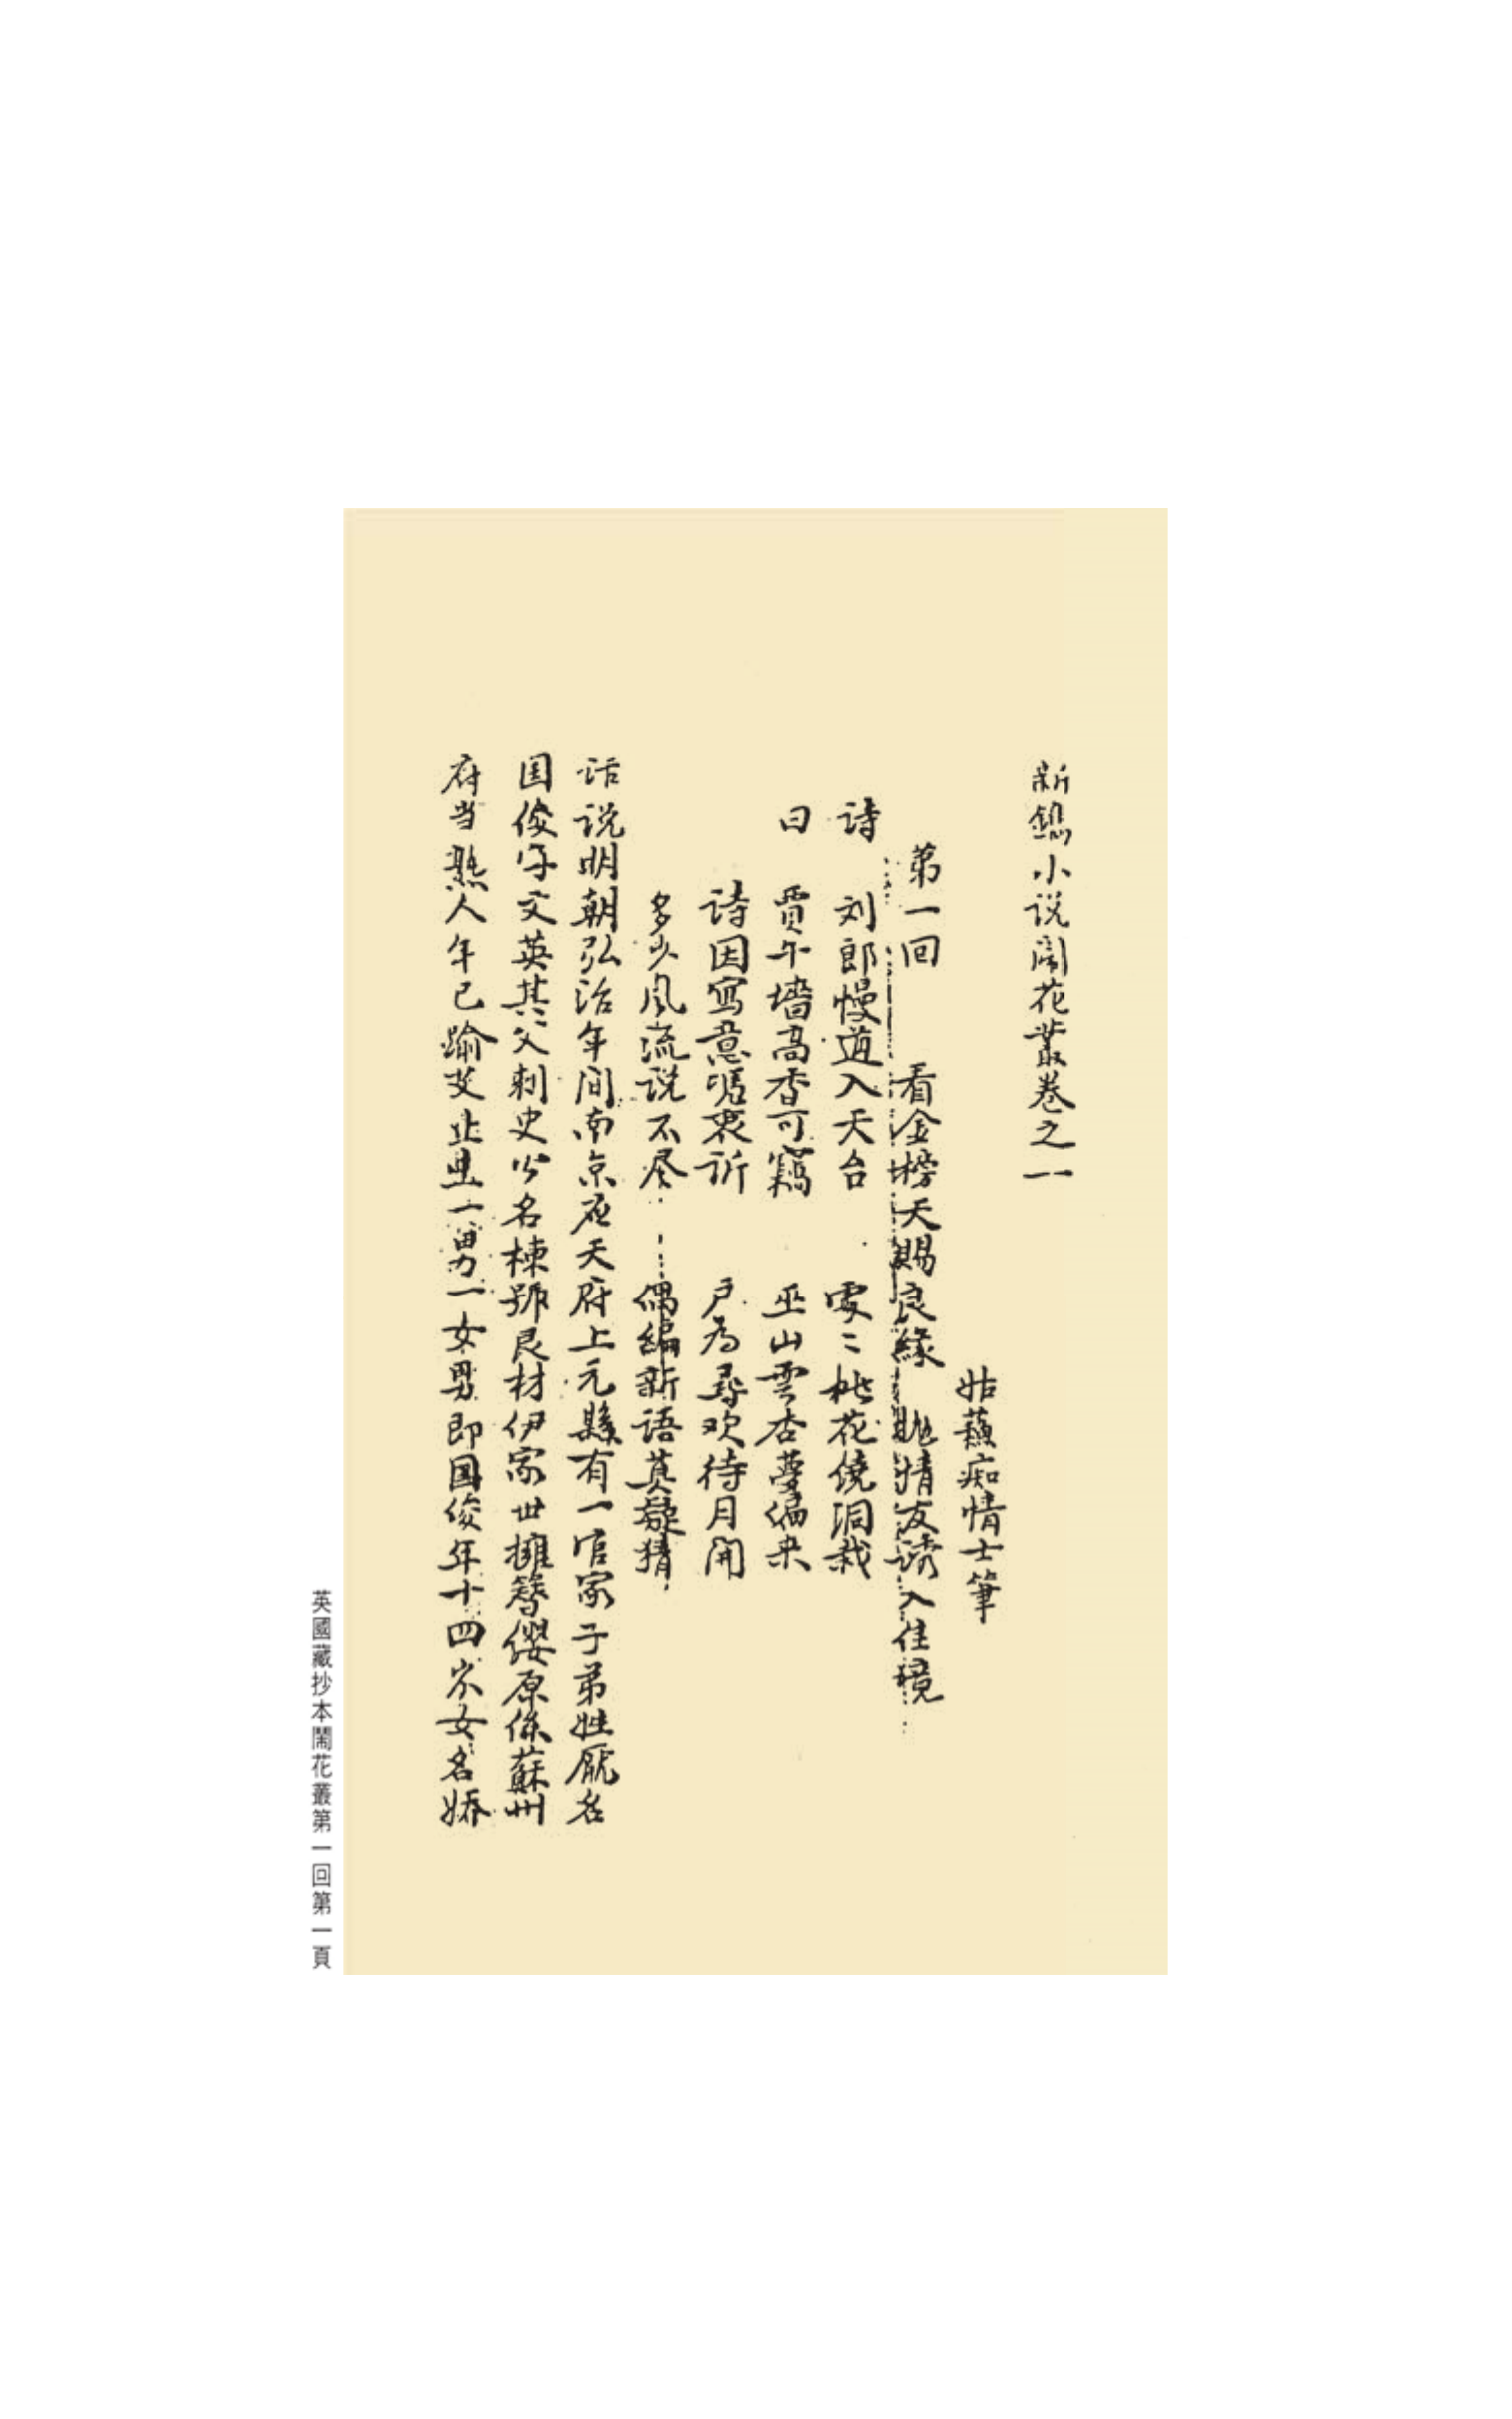 新鐫小说闹花叢卷之一
姑蘓痴情士筆
第一回　看金榜天賜良緣　拋情友诱入佳境
诗　刘郎慢道入天台　處〻桃花儘洞栽
曰　賈午墻高香可竊　巫山雲杳夢偏来
诗因寫意凴衷訴　户為尋欢待月開
多少風流说不尽　偶編新语莫疑猜
话说明朝弘治年间南京应天府上元縣有一官家子弟姓厐名
国俊字文英其父刺史公名棟號良材伊家世擁簪纓原係蘇州
府当熟人年已踰艾止生一男一女男即国俊年十四岁女名娇
英國藏抄本鬧花叢第一回第一頁